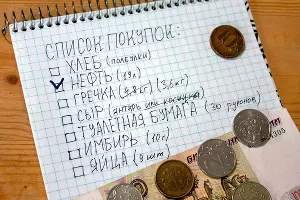 СПИСОК ПОКУПОК:
ХЛЕБ (полбулки)
НЕФТЬ (19л)
ГРЕЧКА (3,6кг)
СЫР (янтарь или
ТУАЛЕТНАЯ БУМАГА (30 рулонов)
ИМБИРЬ (10г.)
ЯЙЦА (9 шт)